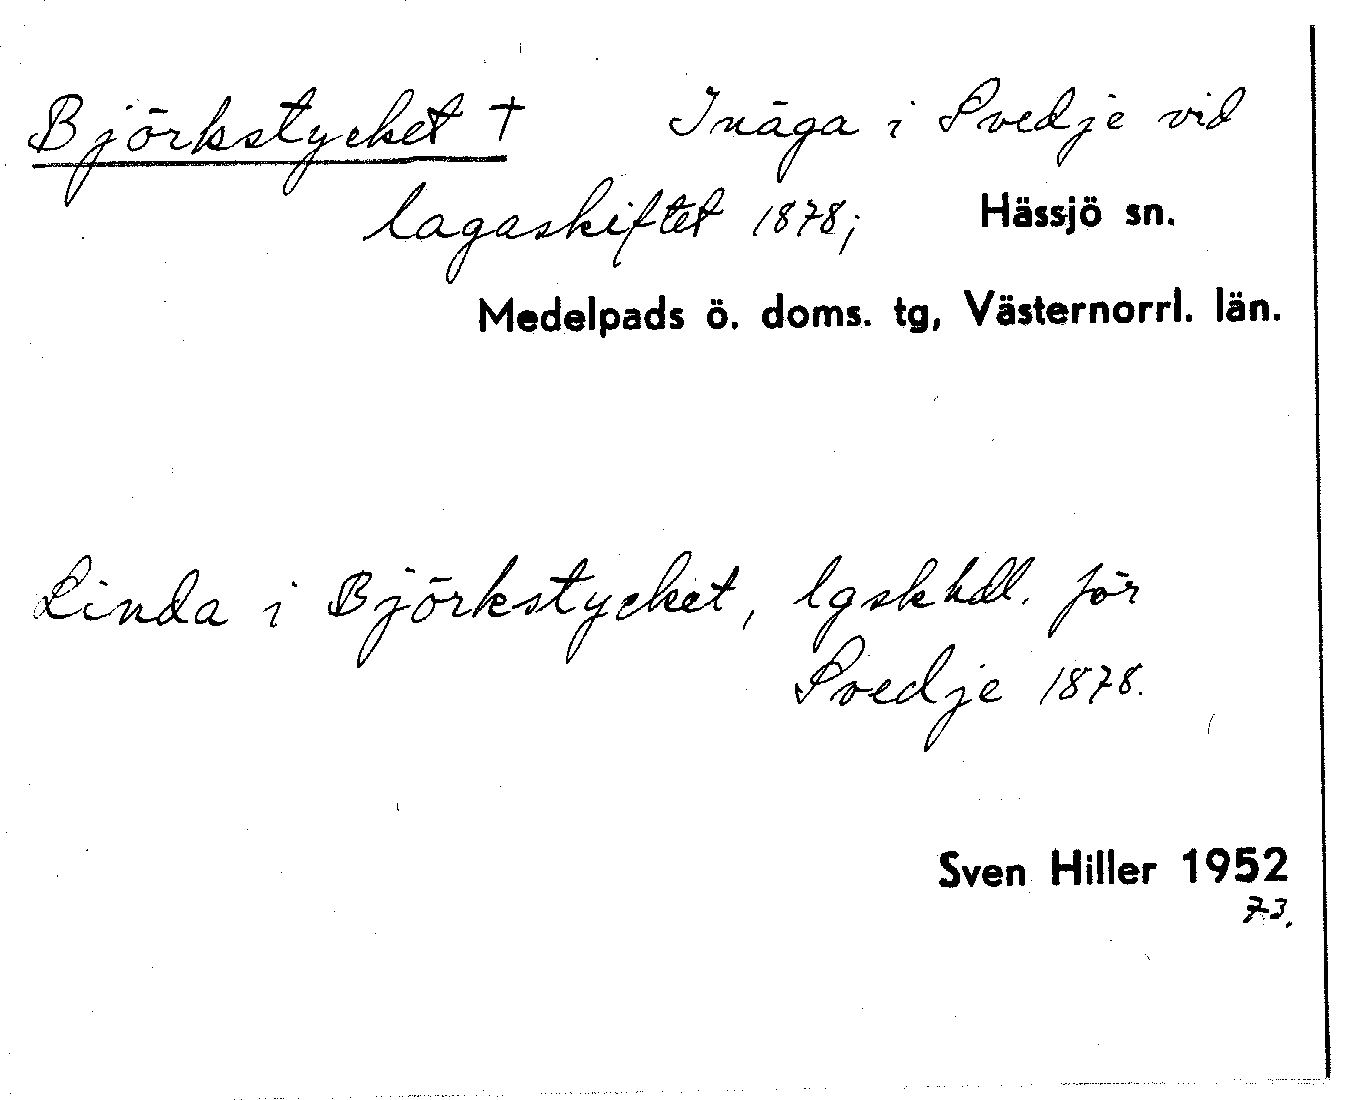 Björkstycket † Inäga i Svedje vid
lagaskiftet 1878; Hässjö sn.
Medelpads ö. doms. tg, Västernorrl. län.
Linda i Björkstycket, lgskhdl. för
Svedje 1878.
Sven Hiller 1952
73.